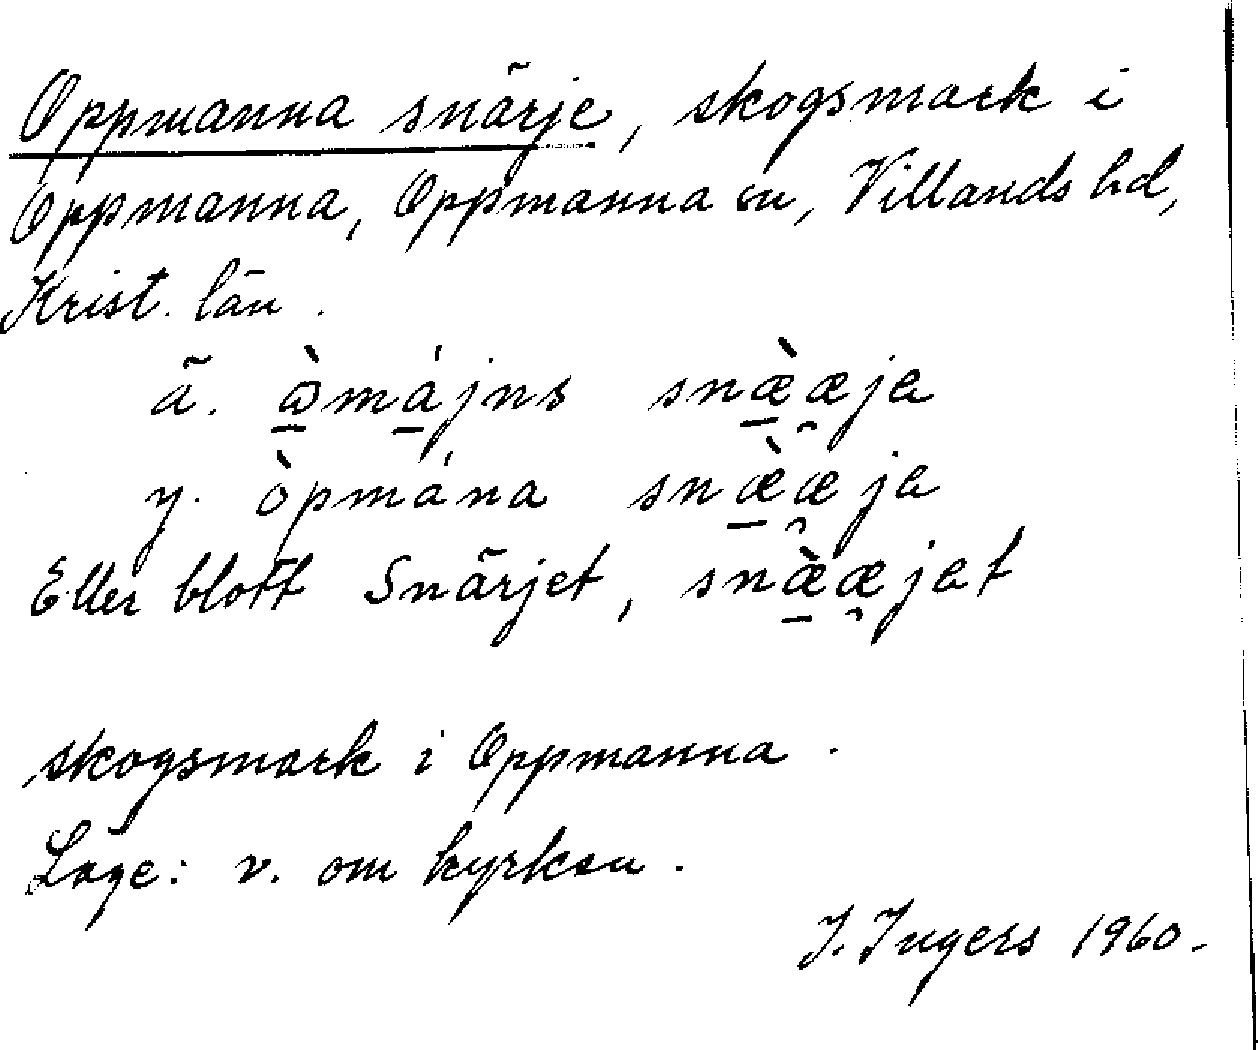 Oppmanna snärje, skogsmark i
Oppmanna, Oppmanna sn, Villands hd,
Krist. län.
ä. ɷ̱̀má̱jns snæ̱̀æ̯ja
y. òpmána snæ̱̀æ̯ja
Eller blott Snärjet, snæ̱̀æ̯jat
skogsmark i Oppmanna.
Läge: v. om kyrkan.
I. Ingers 1960.